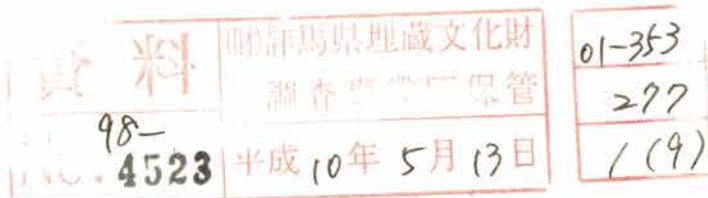 資料
98-
No. 4523
(財)群馬県埋蔵文化財
調査事業団保管
平成10年5月13日
01-353
277
1(9)